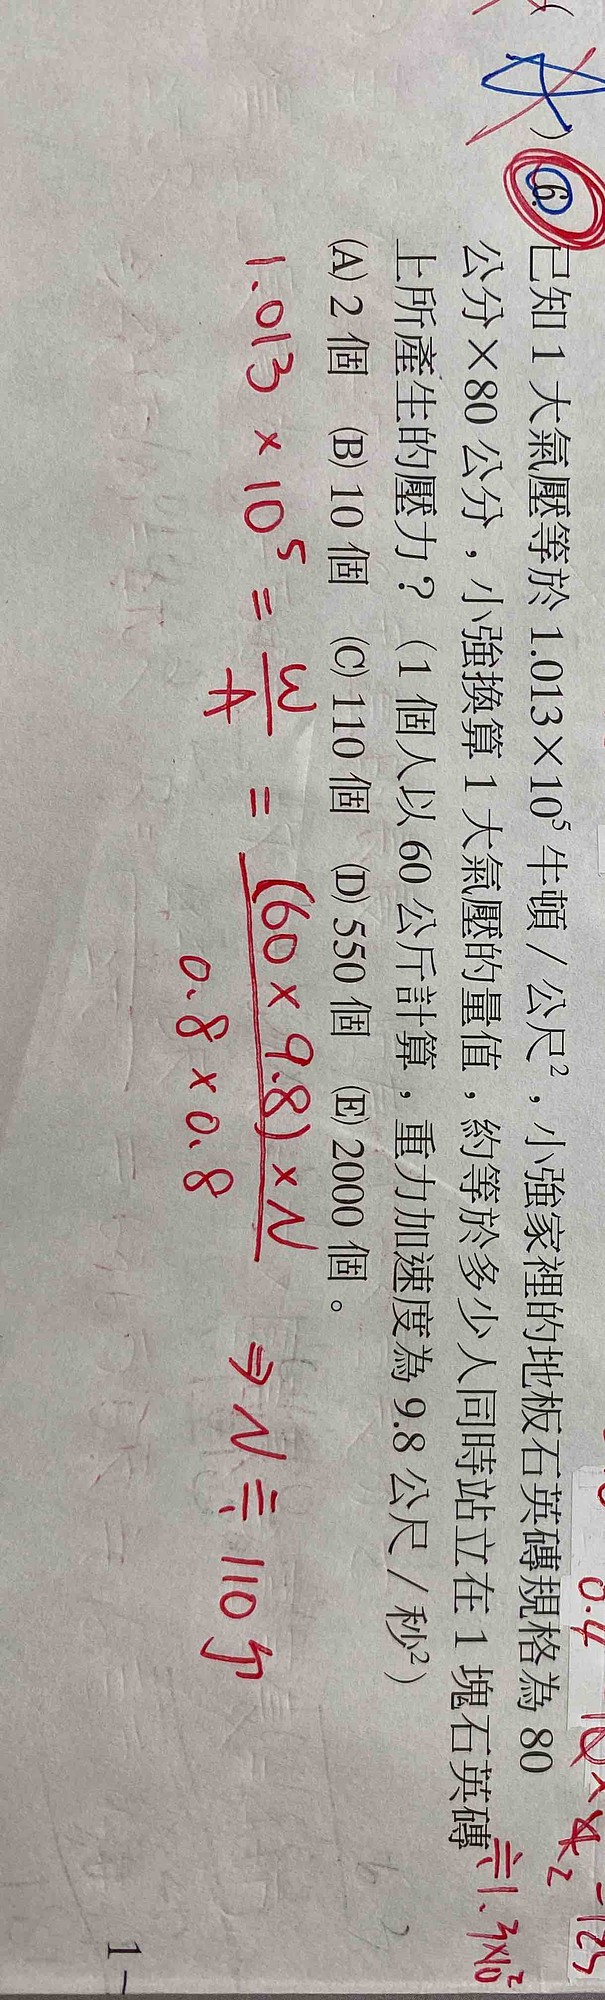 6. 已知 1 大氣壓等於 1.013×10⁵ 牛頓/公尺²，小強家裡的地板石英磚規格為 80
公分×80 公分，小強換算 1 大氣壓的量值，約等於多少人同時站立在 1 塊石英磚
上所產生的壓力？（1 個人以 60 公斤計算，重力加速度為 9.8 公尺/秒²）
(A) 2 個 (B) 10 個 (C) 110 個 (D) 550 個 (E) 2000 個。
1.013 × 10⁵ = W/A = (60 × 9.8) × N / 0.8 × 0.8 ⇒ N ≒ 110
≒ 1.3×10²
0.4
1-